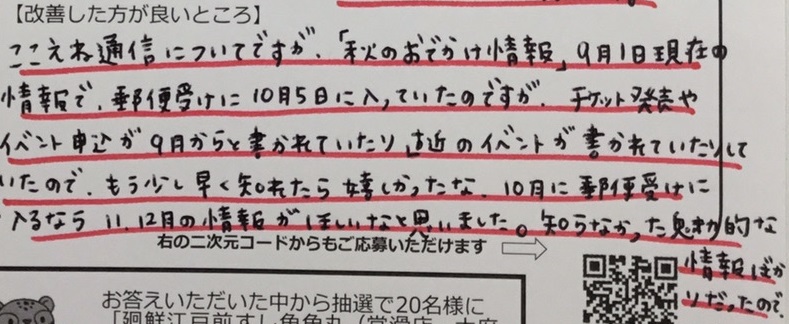 【改善した方が良いところ】
ここえね通信についてですが、「秋のおでかけ情報」9月1日現在の
情報で、郵便受けに10月5日に入っていたのですが、チケット発売や
イベント申込が9月からと書かれていたり、直近のイベントが書かれていたりして
いたので、もう少し早く知れたら嬉しかったな、10月に郵便受けに
入るなら11、12月の情報がほしいなと思いました。知らなかった魅力的な
情報ばか
りだったので、
右の二次元コードからもご応募いただけます
お答えいただいた中から抽選で20名様に
「廻鮮江戸前すし魚魚丸（常滑店、大府